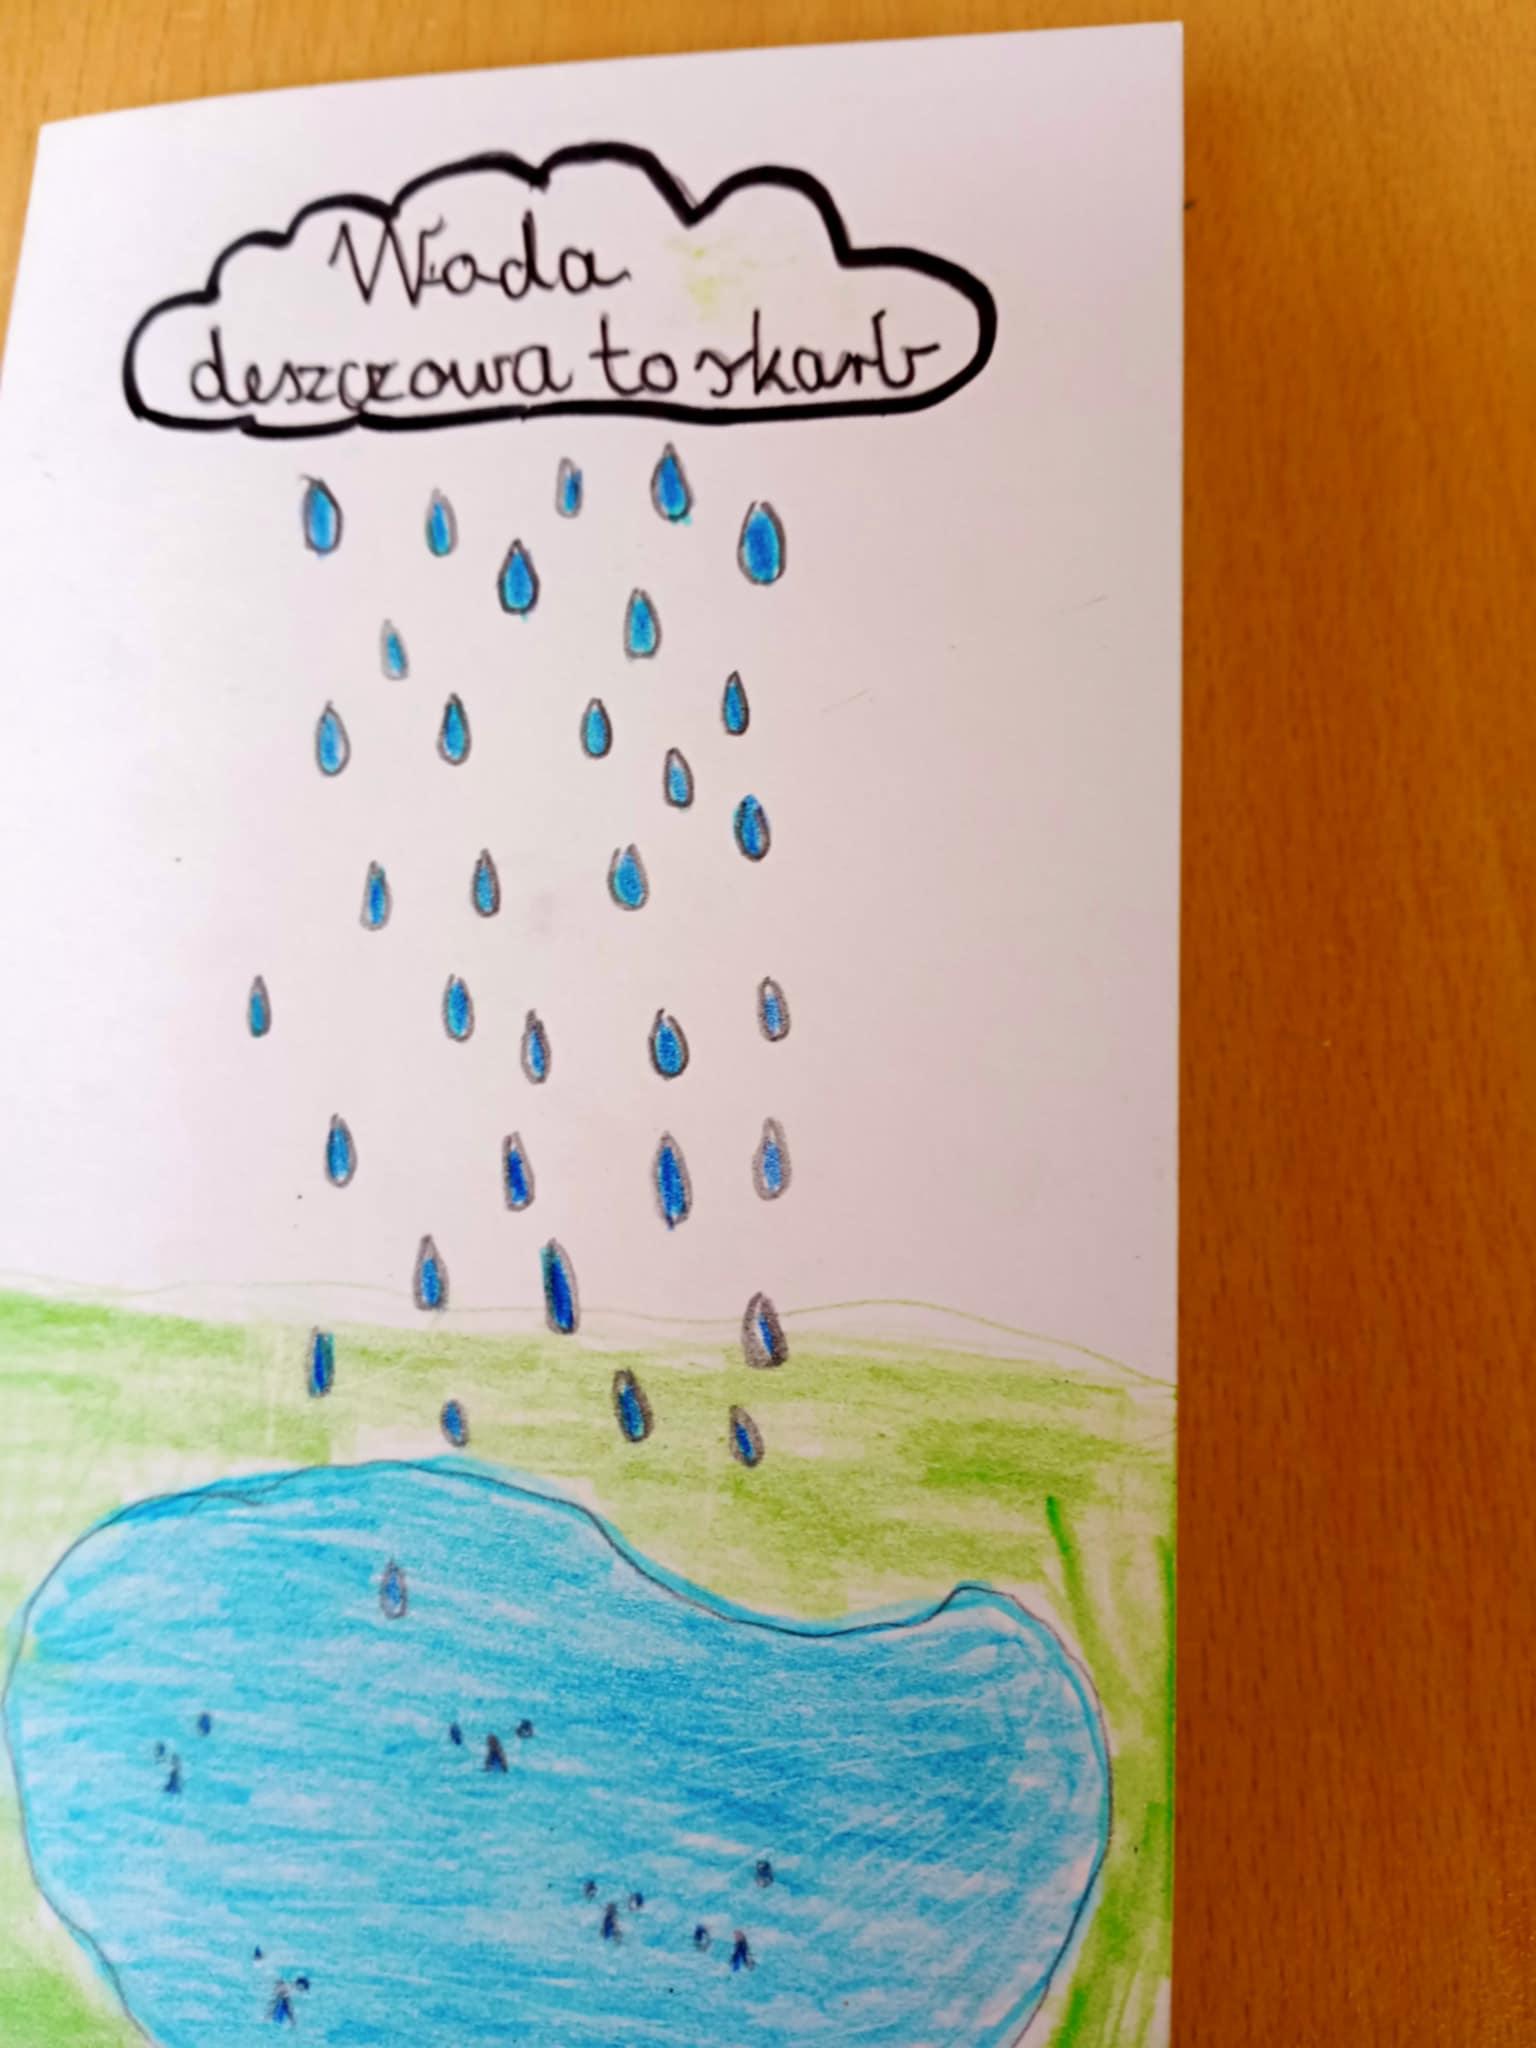 Woda
deszczowa to skarb